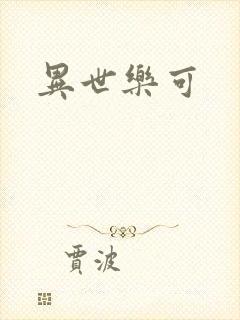 異世樂可
賈波